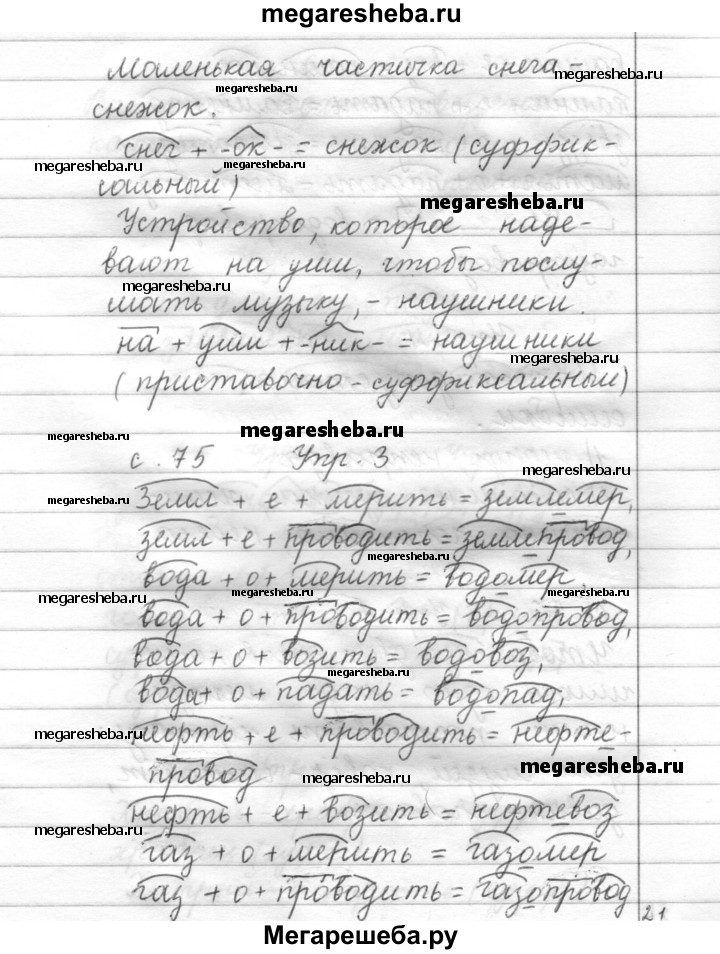 megaresheba.ru
Маленькая частичка снега -
megaresheba.ru
снежок.
снег + -ок- = снежок (суффик-
megaresheba.ru
megaresheba.ru
сальный)
megaresheba.ru
Устройство, которое наде-
вают на уши, чтобы послу-
megaresheba.ru
шать музыку, - наушники.
на + уши + -ник- = наушники
megaresheba.ru
(приставочно - суффиксальный)
megaresheba.ru
megaresheba.ru
с. 75 Упр. 3
megaresheba.ru
megaresheba.ru
Земл + е + мерить = землемер,
земл + е + проводить = землепровод,
megaresheba.ru
вода + о + мерить = водомер,
megaresheba.ru
megaresheba.ru
megaresheba.ru
вода + о + проводить = водопровод,
вода + о + возить = водовоз,
megaresheba.ru
вода + о + падать = водопад,
нефть + е + проводить = нефте-
megaresheba.ru
провод
megaresheba.ru
megaresheba.ru
нефть + е + возить = нефтевоз
megaresheba.ru
газ + о + мерить = газомер
газ + о + проводить = газопровод
21
Мегарешеба.ру